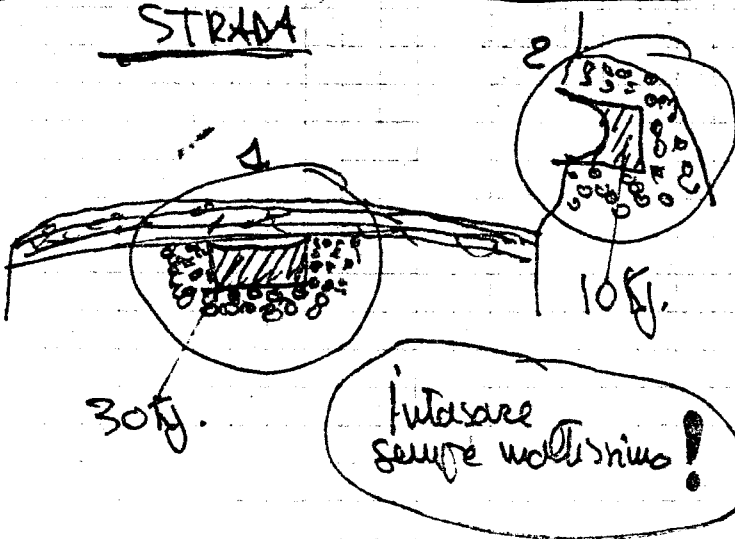 STRADA
2
1
10 Kg.
30 Kg.
Intasare
sempre moltissimo!